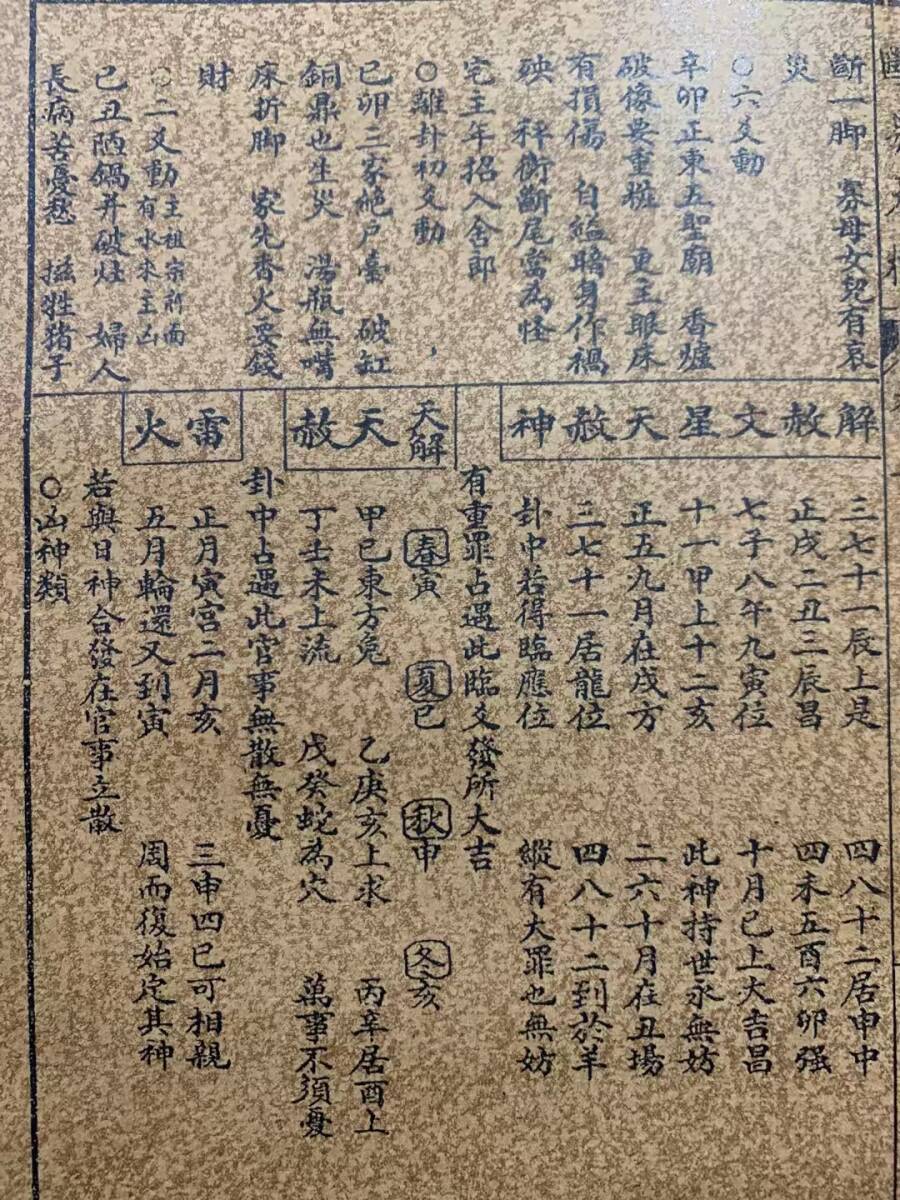 斷一脚　寡母女兒有哀
災
○六爻動
辛卯正東五聖廟　香爐
破像要重粧　更主眼床
有損傷　自縊暗身作禍
殃　秤衡斷尾當為怪
宅主年招入舍郎
○離卦初爻動
己卯三家絶戶臺　破缸
銅鼎也生災　湯瓶無嘴
床折脚　家先香火要錢
財
○二爻動主祖宗所面有水來主凶
己丑陋鍋并破灶　婦人
長病苦憂愁　牲猪子
解赦文星天赦神
三七十一辰上是　四八十二居申中
正戌二丑三辰昌　四未五酉六卯强
七子八午九寅位　十月巳上大吉昌
十一甲上十二亥　此神持世永無妨
正五九月在戌方　二六十月在丑場
三七十一居龍位　四八十二到於羊
卦中若得臨應位　縱有大罪也無妨
有重罪占遇此臨爻發所大吉
天解
春寅　夏巳　秋申　冬亥
天赦
甲己東方兔　乙庚亥上求　丙辛居酉上
丁壬未上流　戊癸蛇為穴　萬事不須憂
卦中占遇此官事無散無憂
雷火
正月寅宮二月亥　三申四巳可相親
五月輪還又到寅　周而復始定其神
若與日神合發在官事立散
○凶神類